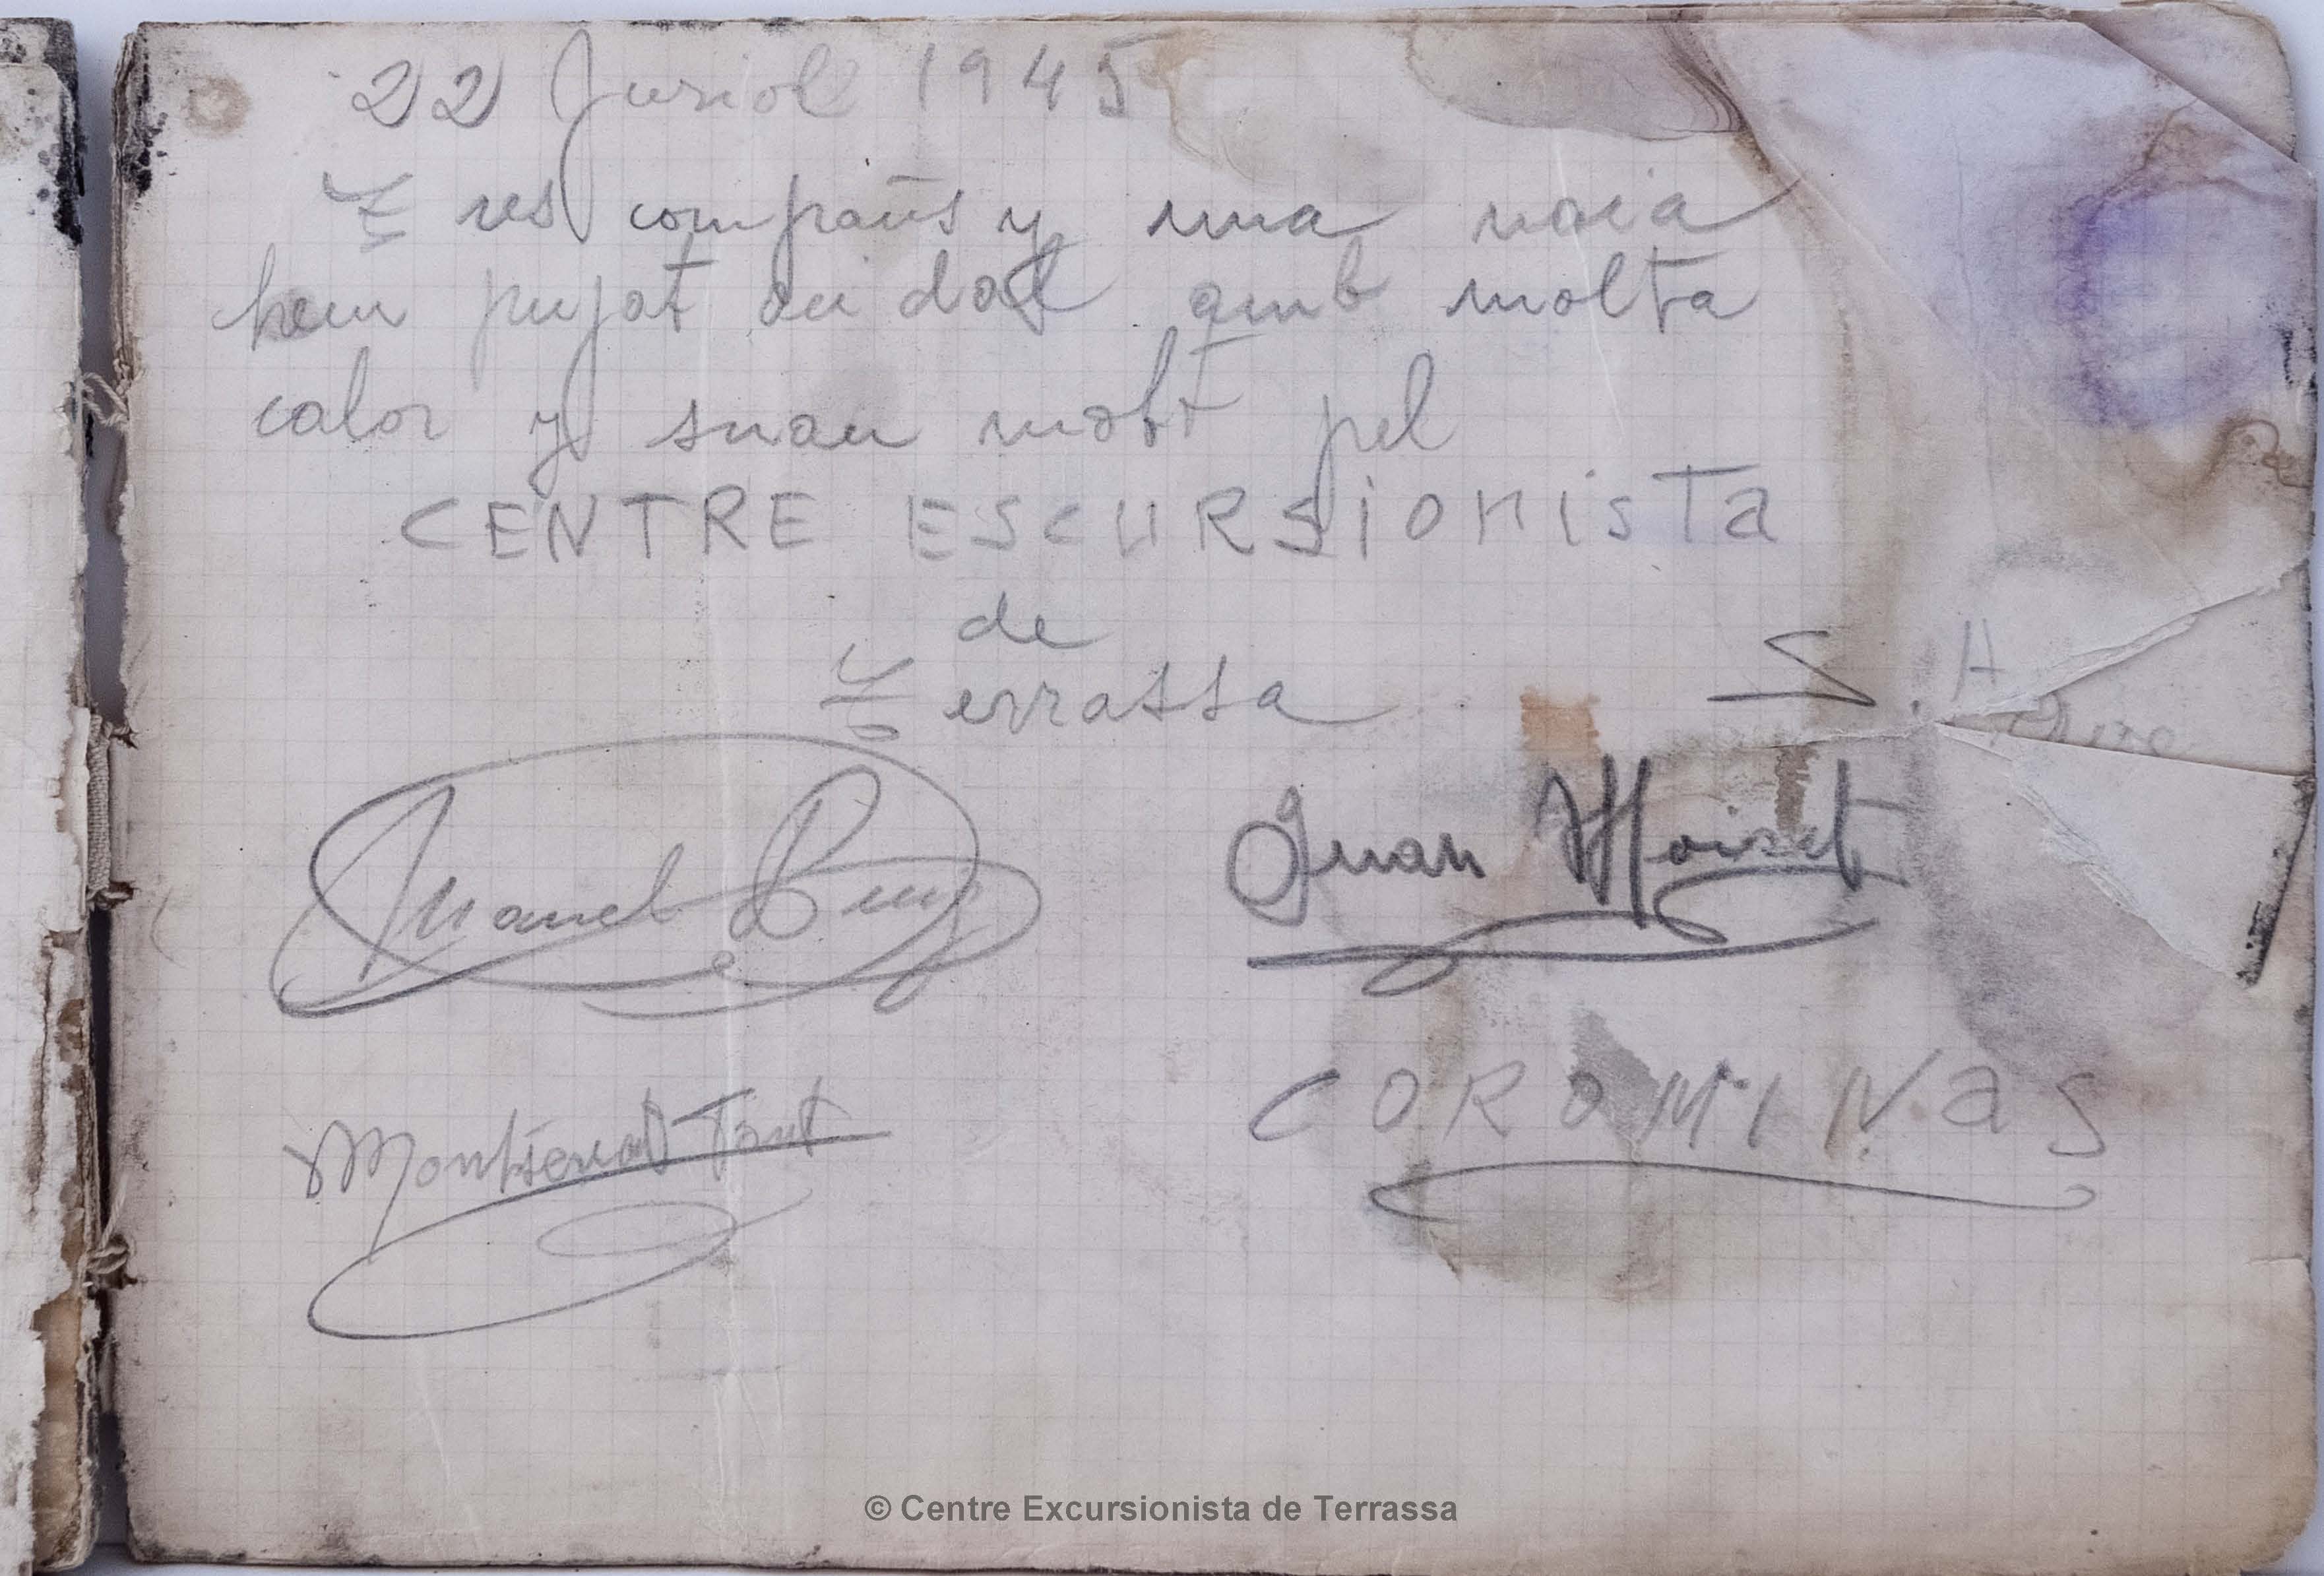 22 Juriol 1945
Tres compañs y una noia
hem pujat an dal amb molta
calor y suan molt pel
CENTRE ESCURSIONISTA
de
Terrassa
S. H
Manel Puig
Juan Moiset
COROMINAS
Montserrat
© Centre Excursionista de Terrassa